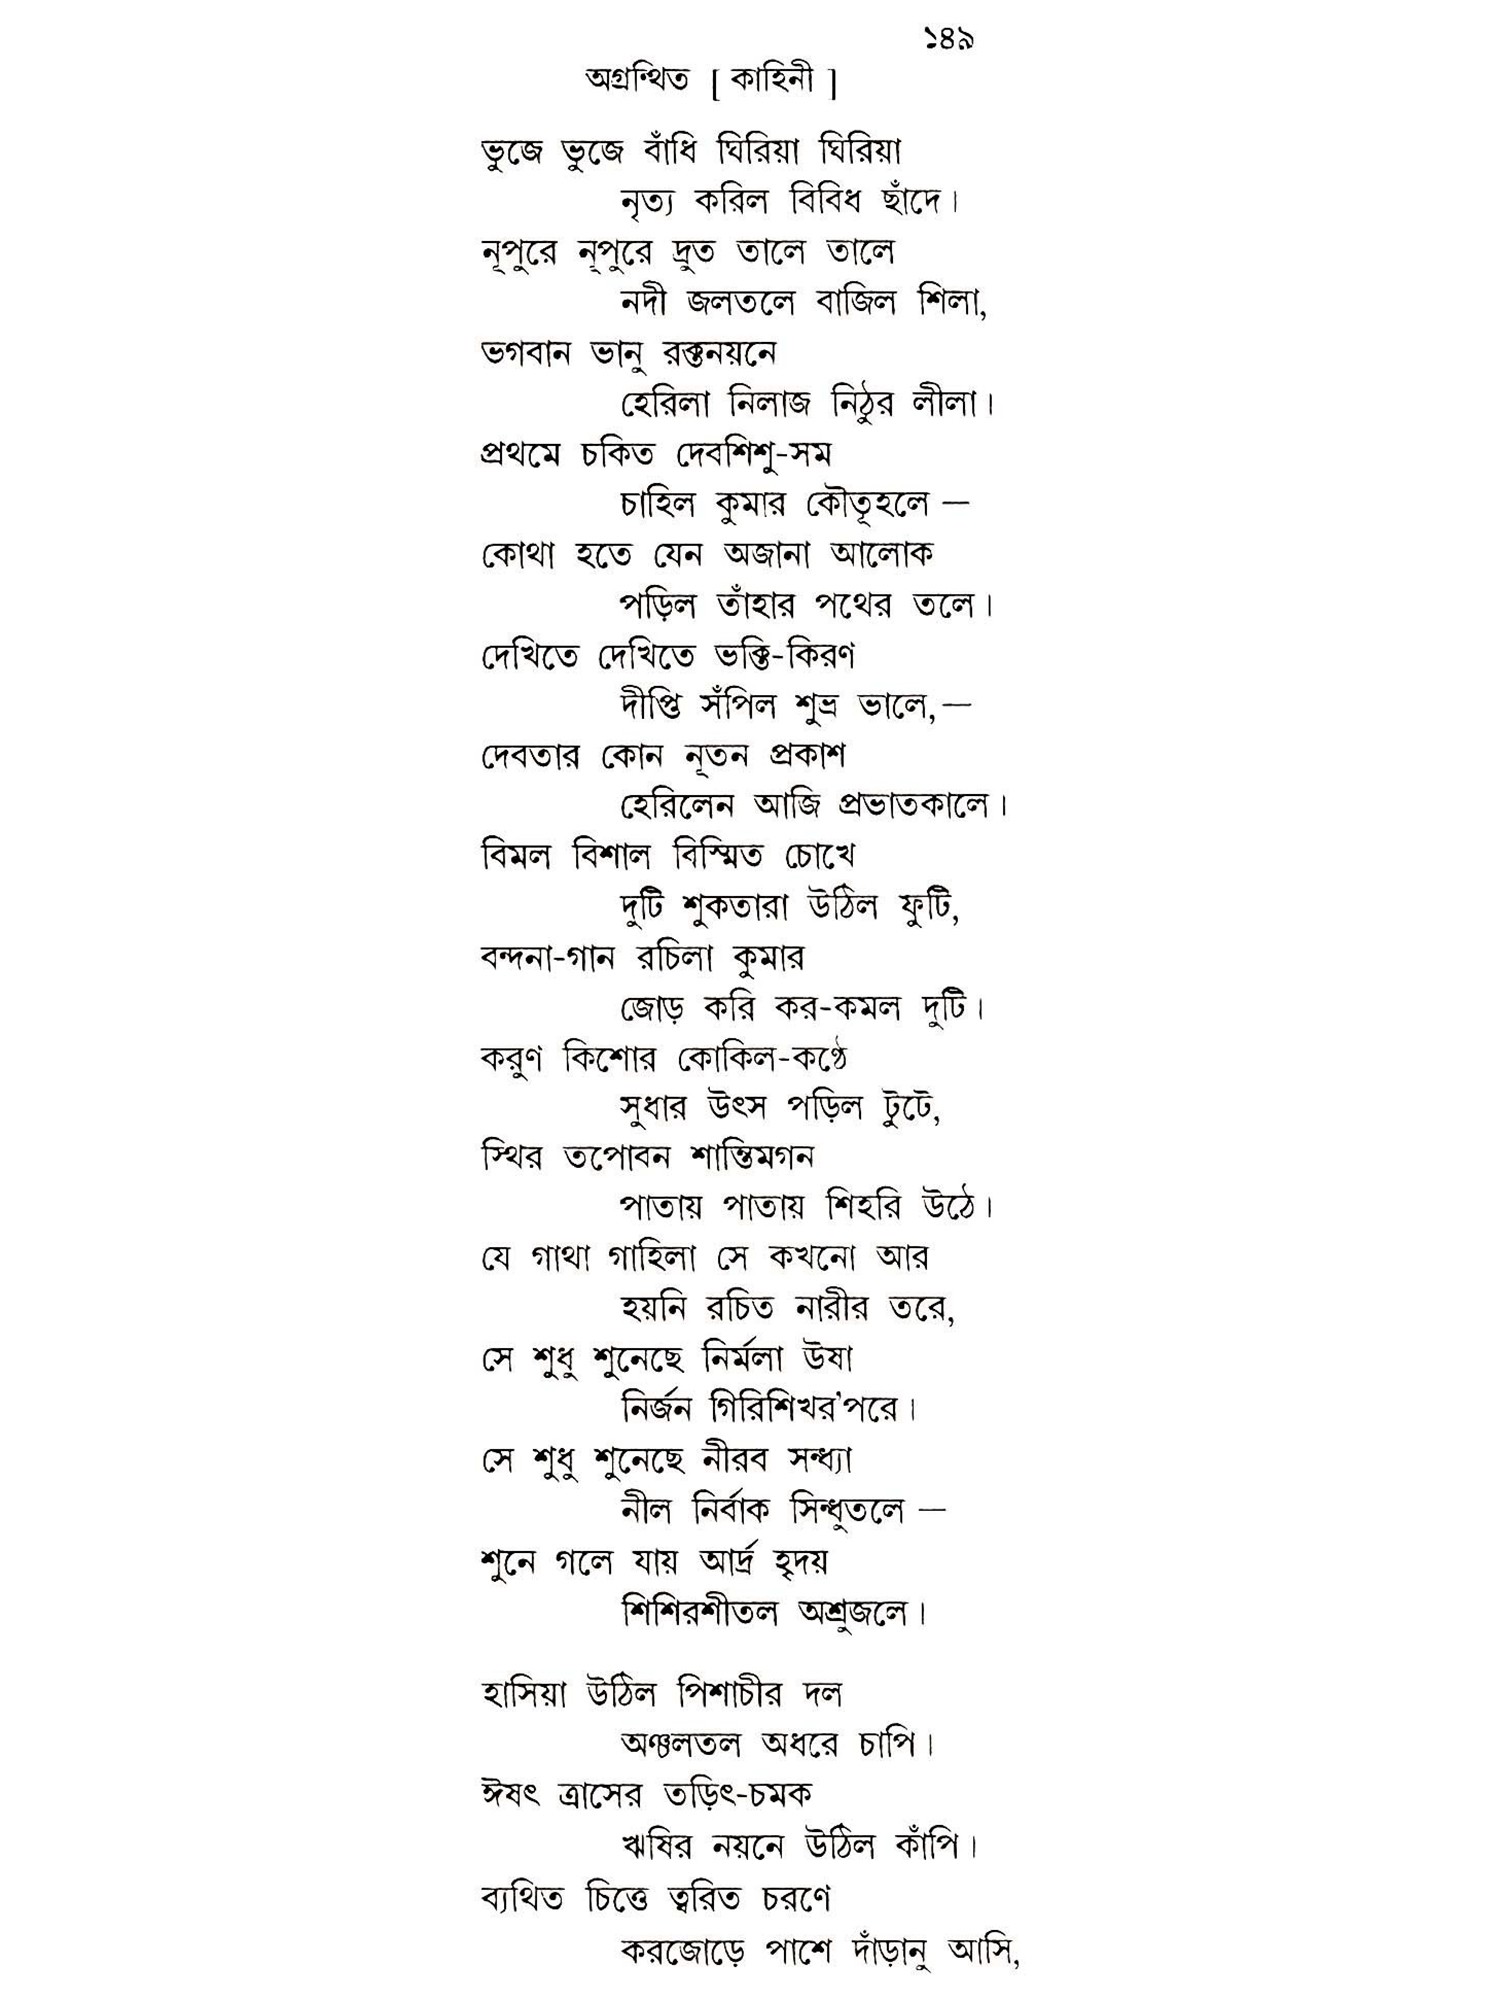 ১৪৯
অগ্রন্থিত [ কাহিনী ]
ভুজে ভুজে বাঁধি ঘিরিয়া ঘিরিয়া
নৃত্য করিল বিবিধ ছাঁদে।
নূপুরে নূপুরে দ্রুত তালে তালে
নদী জলতলে বাজিল শিলা,
ভগবান ভানু রক্তনয়নে
হেরিলা নিলাজ নিঠুর লীলা।
প্রথমে চকিত দেবশিশু-সম
চাহিল কুমার কৌতূহলে —
কোথা হতে যেন অজানা আলোক
পড়িল তাঁহার পথের তলে।
দেখিতে দেখিতে ভক্তি-কিরণ
দীপ্তি সঁপিল শুভ্র ভালে,—
দেবতার কোন নূতন প্রকাশ
হেরিলেন আজি প্রভাতকালে।
বিমল বিশাল বিস্মিত চোখে
দুটি শুকতারা উঠিল ফুটি,
বন্দনা-গান রচিলা কুমার
জোড় করি কর-কমল দুটি।
করুণ কিশোর কোকিল-কণ্ঠে
সুধার উৎস পড়িল টুটে,
স্থির তপোবন শান্তিমগন
পাতায় পাতায় শিহরি উঠে।
যে গাথা গাহিলা সে কখনো আর
হয়নি রচিত নারীর তরে,
সে শুধু শুনেছে নির্মলা উষা
নির্জন গিরিশিখর'পরে।
সে শুধু শুনেছে নীরব সন্ধ্যা
নীল নির্বাক সিন্ধুতলে —
শুনে গলে যায় আর্দ্র হৃদয়
শিশিরশীতল অশ্রুজলে।
হাসিয়া উঠিল পিশাচীর দল
অঞ্চলতল অধরে চাপি।
ঈষৎ ত্রাসের তড়িৎ-চমক
ঋষির নয়নে উঠিল কাঁপি।
ব্যথিত চিত্তে ত্বরিত চরণে
করজোড়ে পাশে দাঁড়ানু আসি,